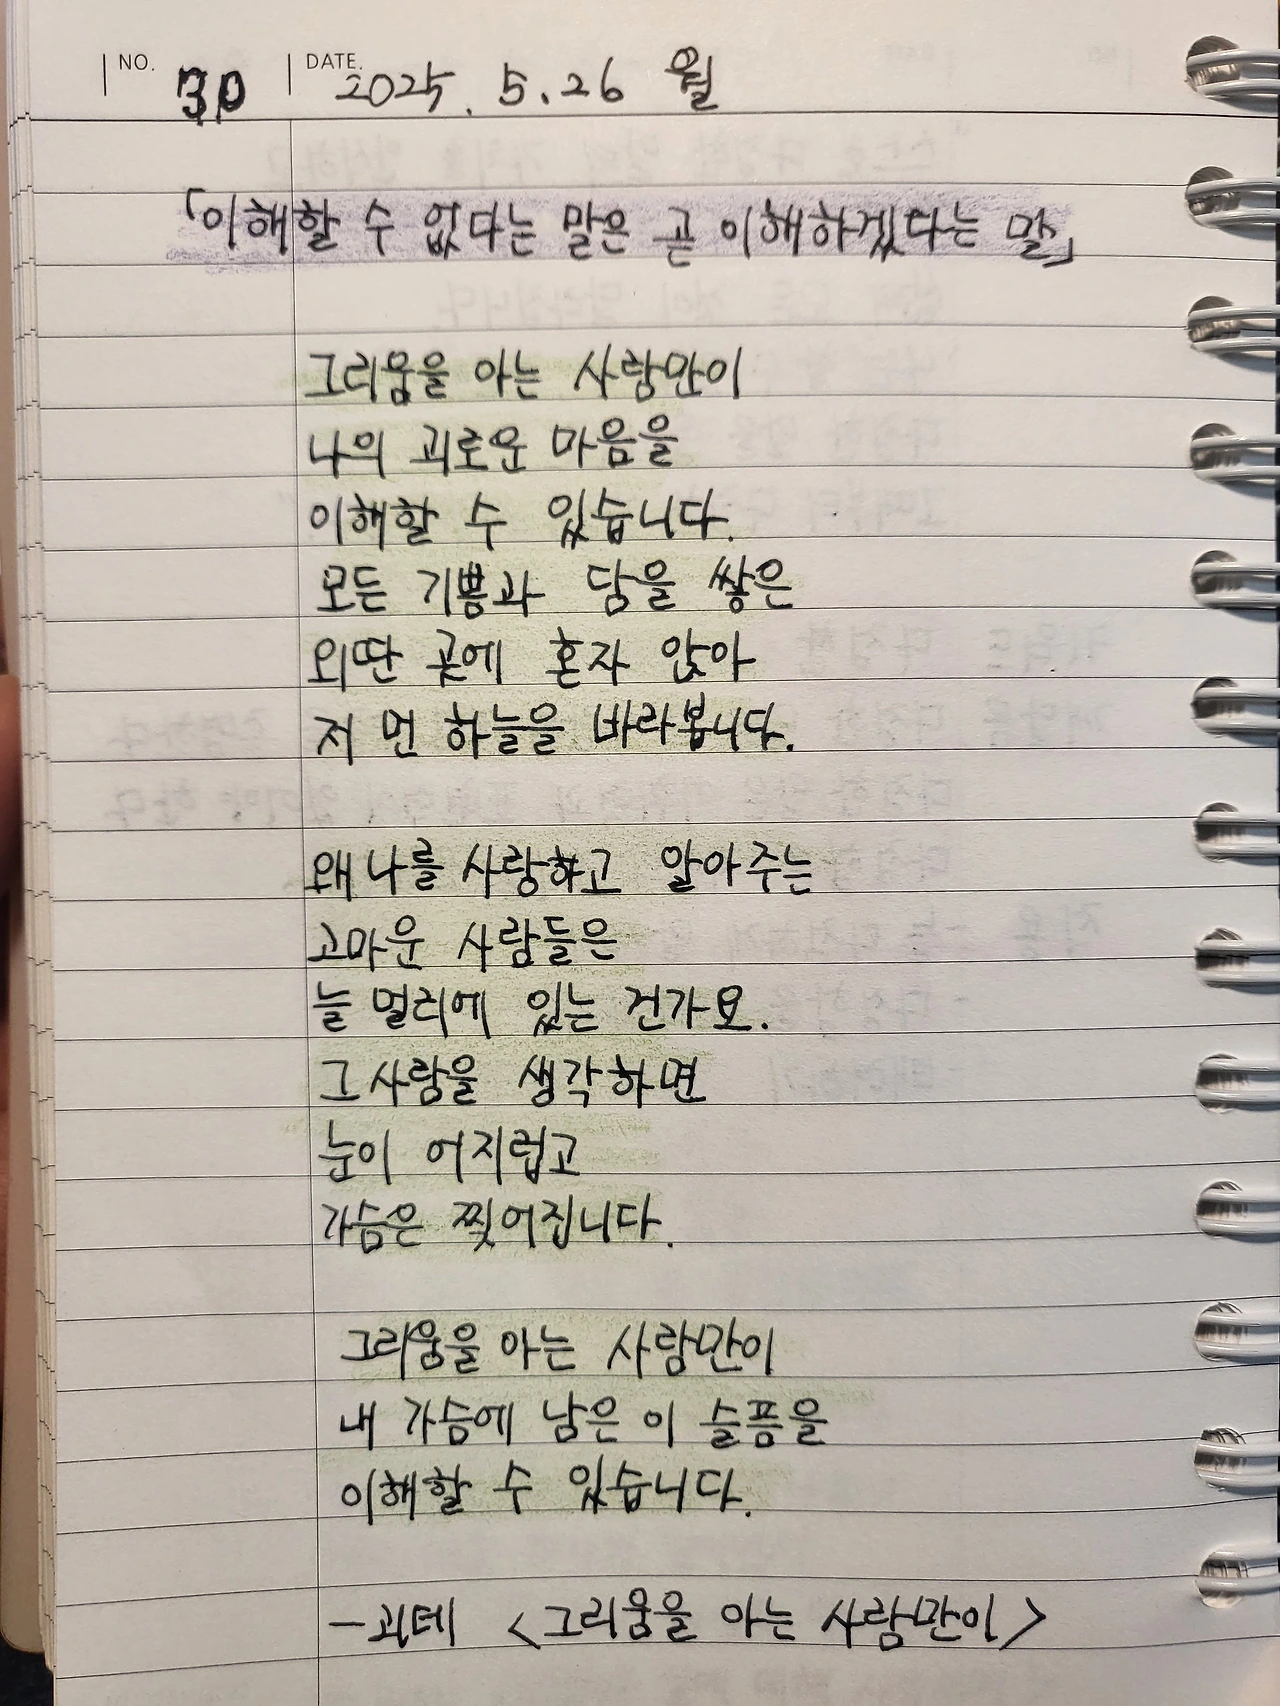 NO. 30 DATE. 2025. 5. 26 월
「이해할 수 없다는 말은 곧 이해하겠다는 말」
그리움을 아는 사람만이
나의 괴로운 마음을
이해할 수 있습니다.
모든 기쁨과 담을 쌓은
외딴 곳에 혼자 앉아
저 먼 하늘을 바라봅니다.
왜 나를 사랑하고 알아주는
고마운 사람들은
늘 멀리에 있는 건가요.
그 사람을 생각하면
눈이 어지럽고
가슴은 찢어집니다.
그리움을 아는 사람만이
내 가슴에 남은 이 슬픔을
이해할 수 있습니다.
- 괴테 <그리움을 아는 사람만이>